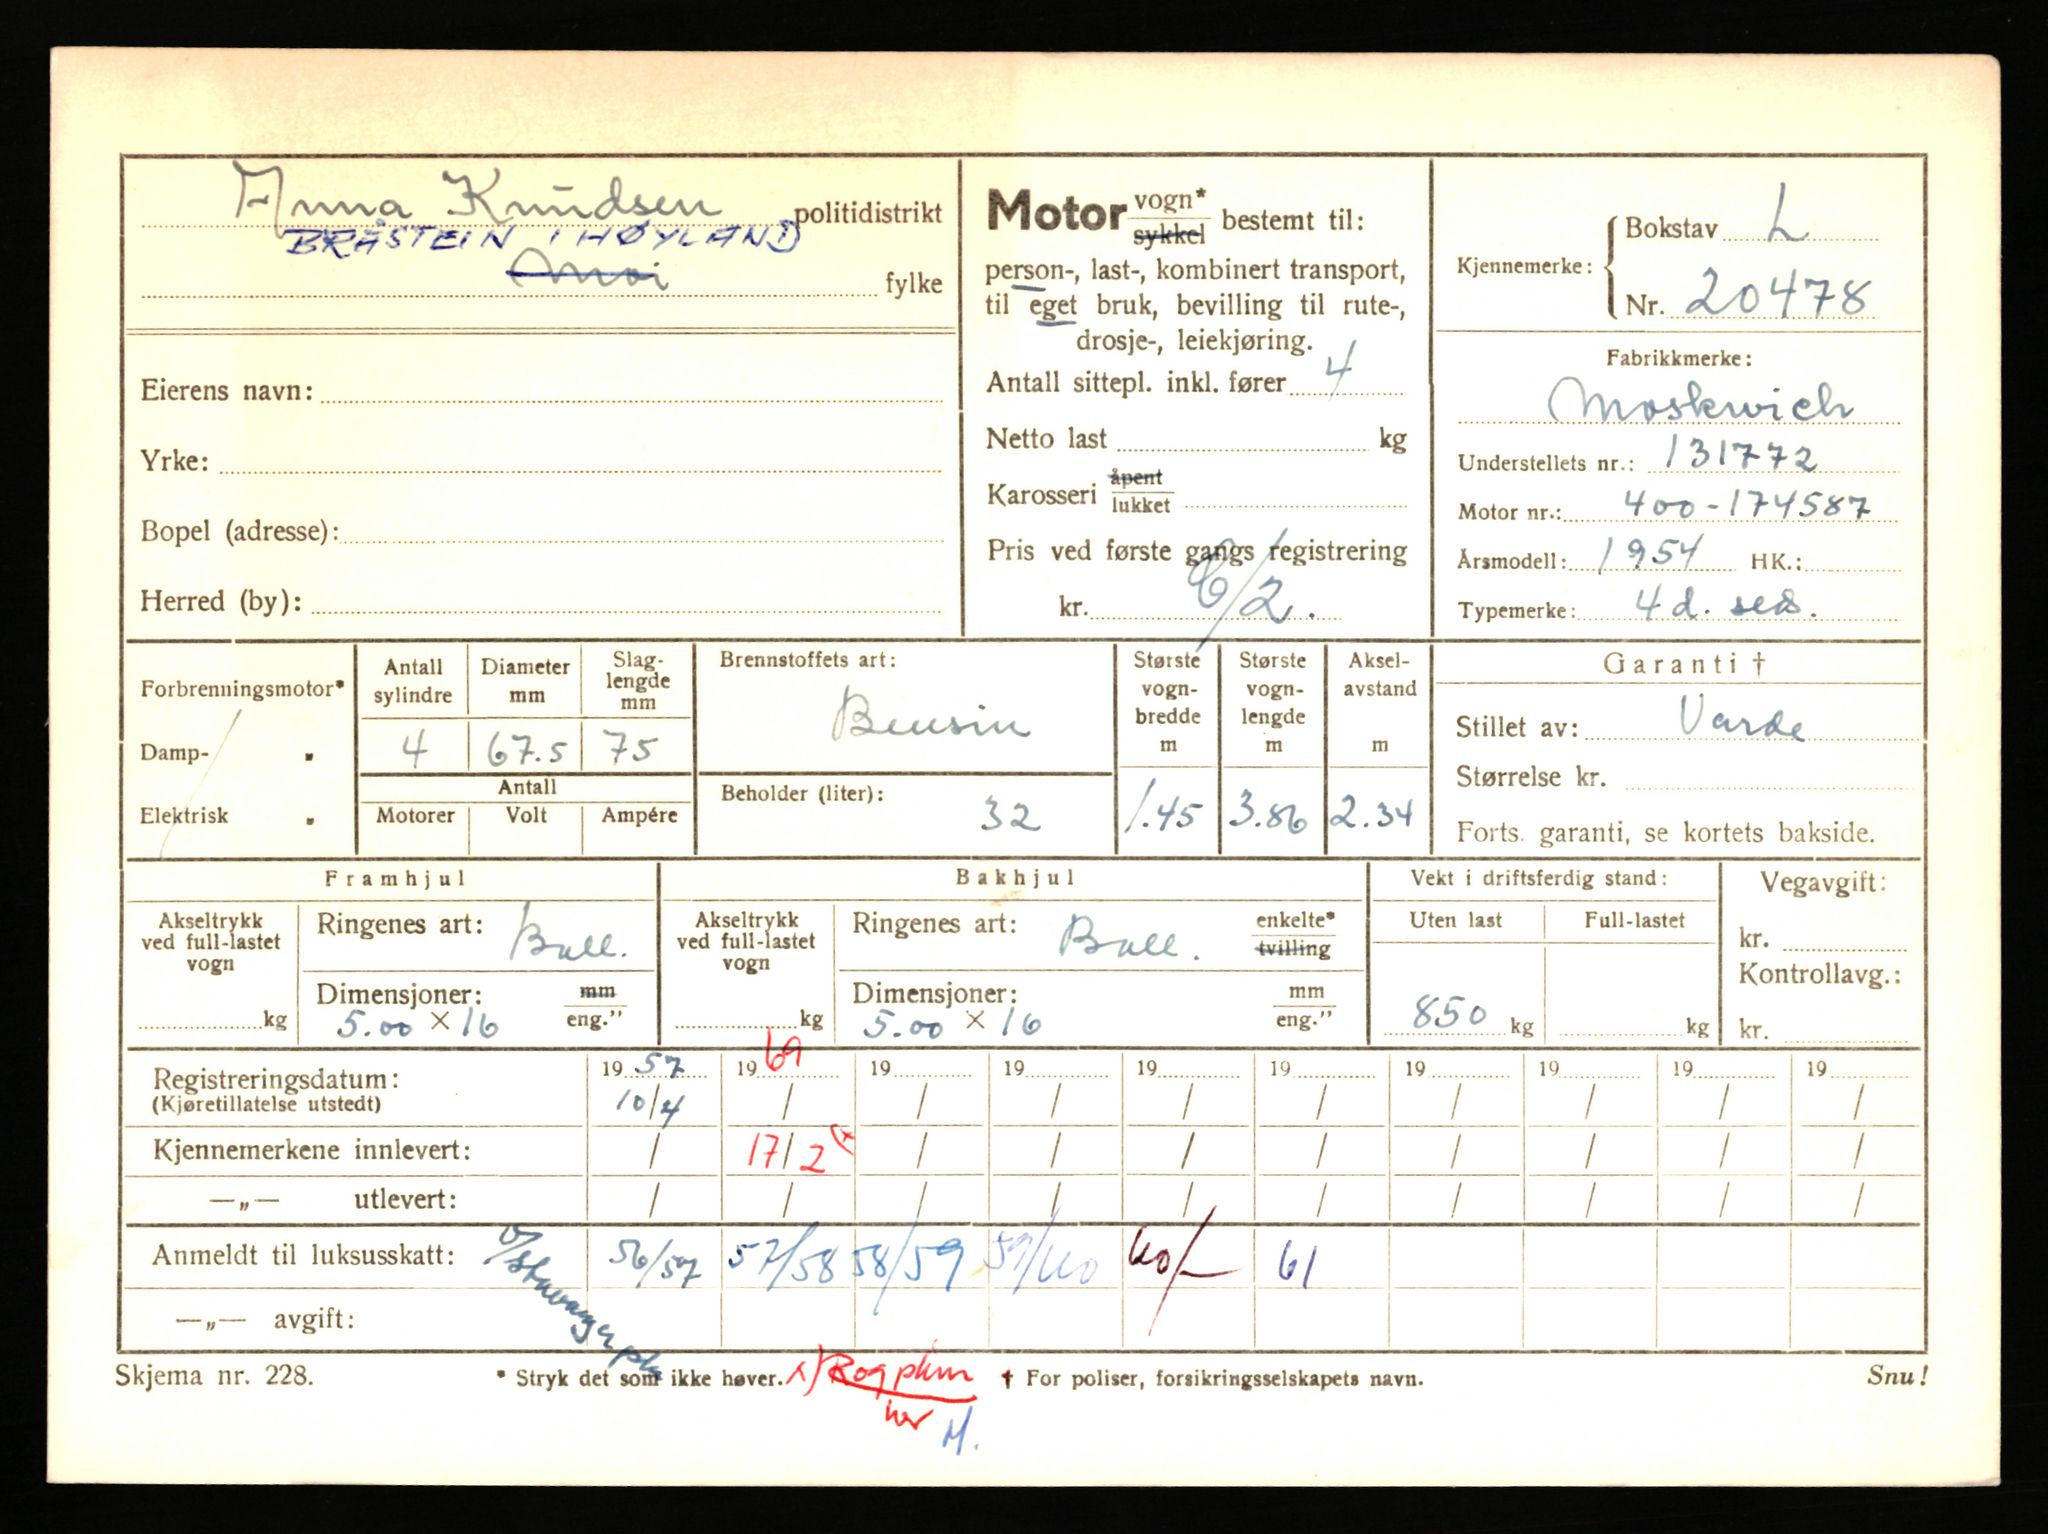 Anna Knudsen politidistrikt
BRÅSTEIN I HØYLAND
Moi fylke
Eierens navn:
Yrke:
Bopel (adresse):
Herred (by):
Motor vogn* sykkel bestemt til:
person-, last-, kombinert transport,
til eget bruk, bevilling til rute-,
drosje-, leiekjøring.
Antall sittepl. inkl. fører 4
Netto last kg
Karosseri åpent lukket
Pris ved første gangs registrering
kr.
Kjennemerke: Bokstav L
Nr. 20478
Fabrikkmerke:
Moskwich
Understellets nr.: 131772
Motor nr.: 400-174587
Årsmodell: 1954 HK.:
Typemerke: 4 d. sed.
Forbrenningsmotor*
Damp- „
Elektrisk „
Antall sylindre Diameter mm Slag-lengde mm
4 67.5 75
Antall
Motorer Volt Ampére
Brennstoffets art:
Bensin
Beholder (liter):
32
Største vogn-bredde m Største vogn-lengde m Aksel-avstand m
1.45 3.86 2.34
Garanti †
Stillet av: Varde
Størrelse kr.
Forts. garanti, se kortets bakside.
Framhjul
Akseltrykk ved full-lastet vogn
kg
Ringenes art: Ball.
Dimensjoner: mm eng."
5.00 × 16
Bakhjul
Akseltrykk ved full-lastet vogn
kg
Ringenes art: Ball. enkelte* tvilling
Dimensjoner: mm eng."
5.00 × 16
Vekt i driftsferdig stand:
Uten last Full-lastet
850 kg kg
Vegavgift:
kr.
Kontrollavg.:
kr.
Registreringsdatum: 19 57 19 69 19 19 19 19 19 19 19 19
(Kjøretillatelse utstedt) 10/4 / / / / / / / / /
Kjennemerkene innlevert: / 17/2 x) / / / / / / / /
—„— utlevert: / / / / / / / / / /
Anmeldt til luksusskatt: v/Stavanger pk 56/57 57/58 58/59 59/60 60/— 61
—„— avgift:
Skjema nr. 228. * Stryk det som ikke høver. x) Rog pkm † For poliser, forsikringsselskapets navn. Snu!
her M.